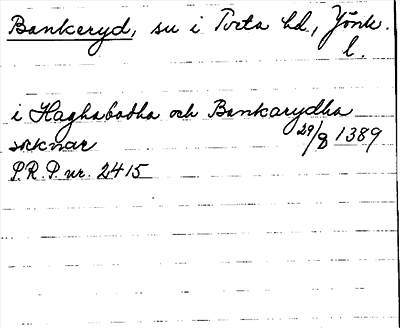 Bankeryd, su i Tveta hd., Jönk.
l.
i Haghabodha och Bankarydha
soknar 29/8 1389
P.R.P. nr. 2415